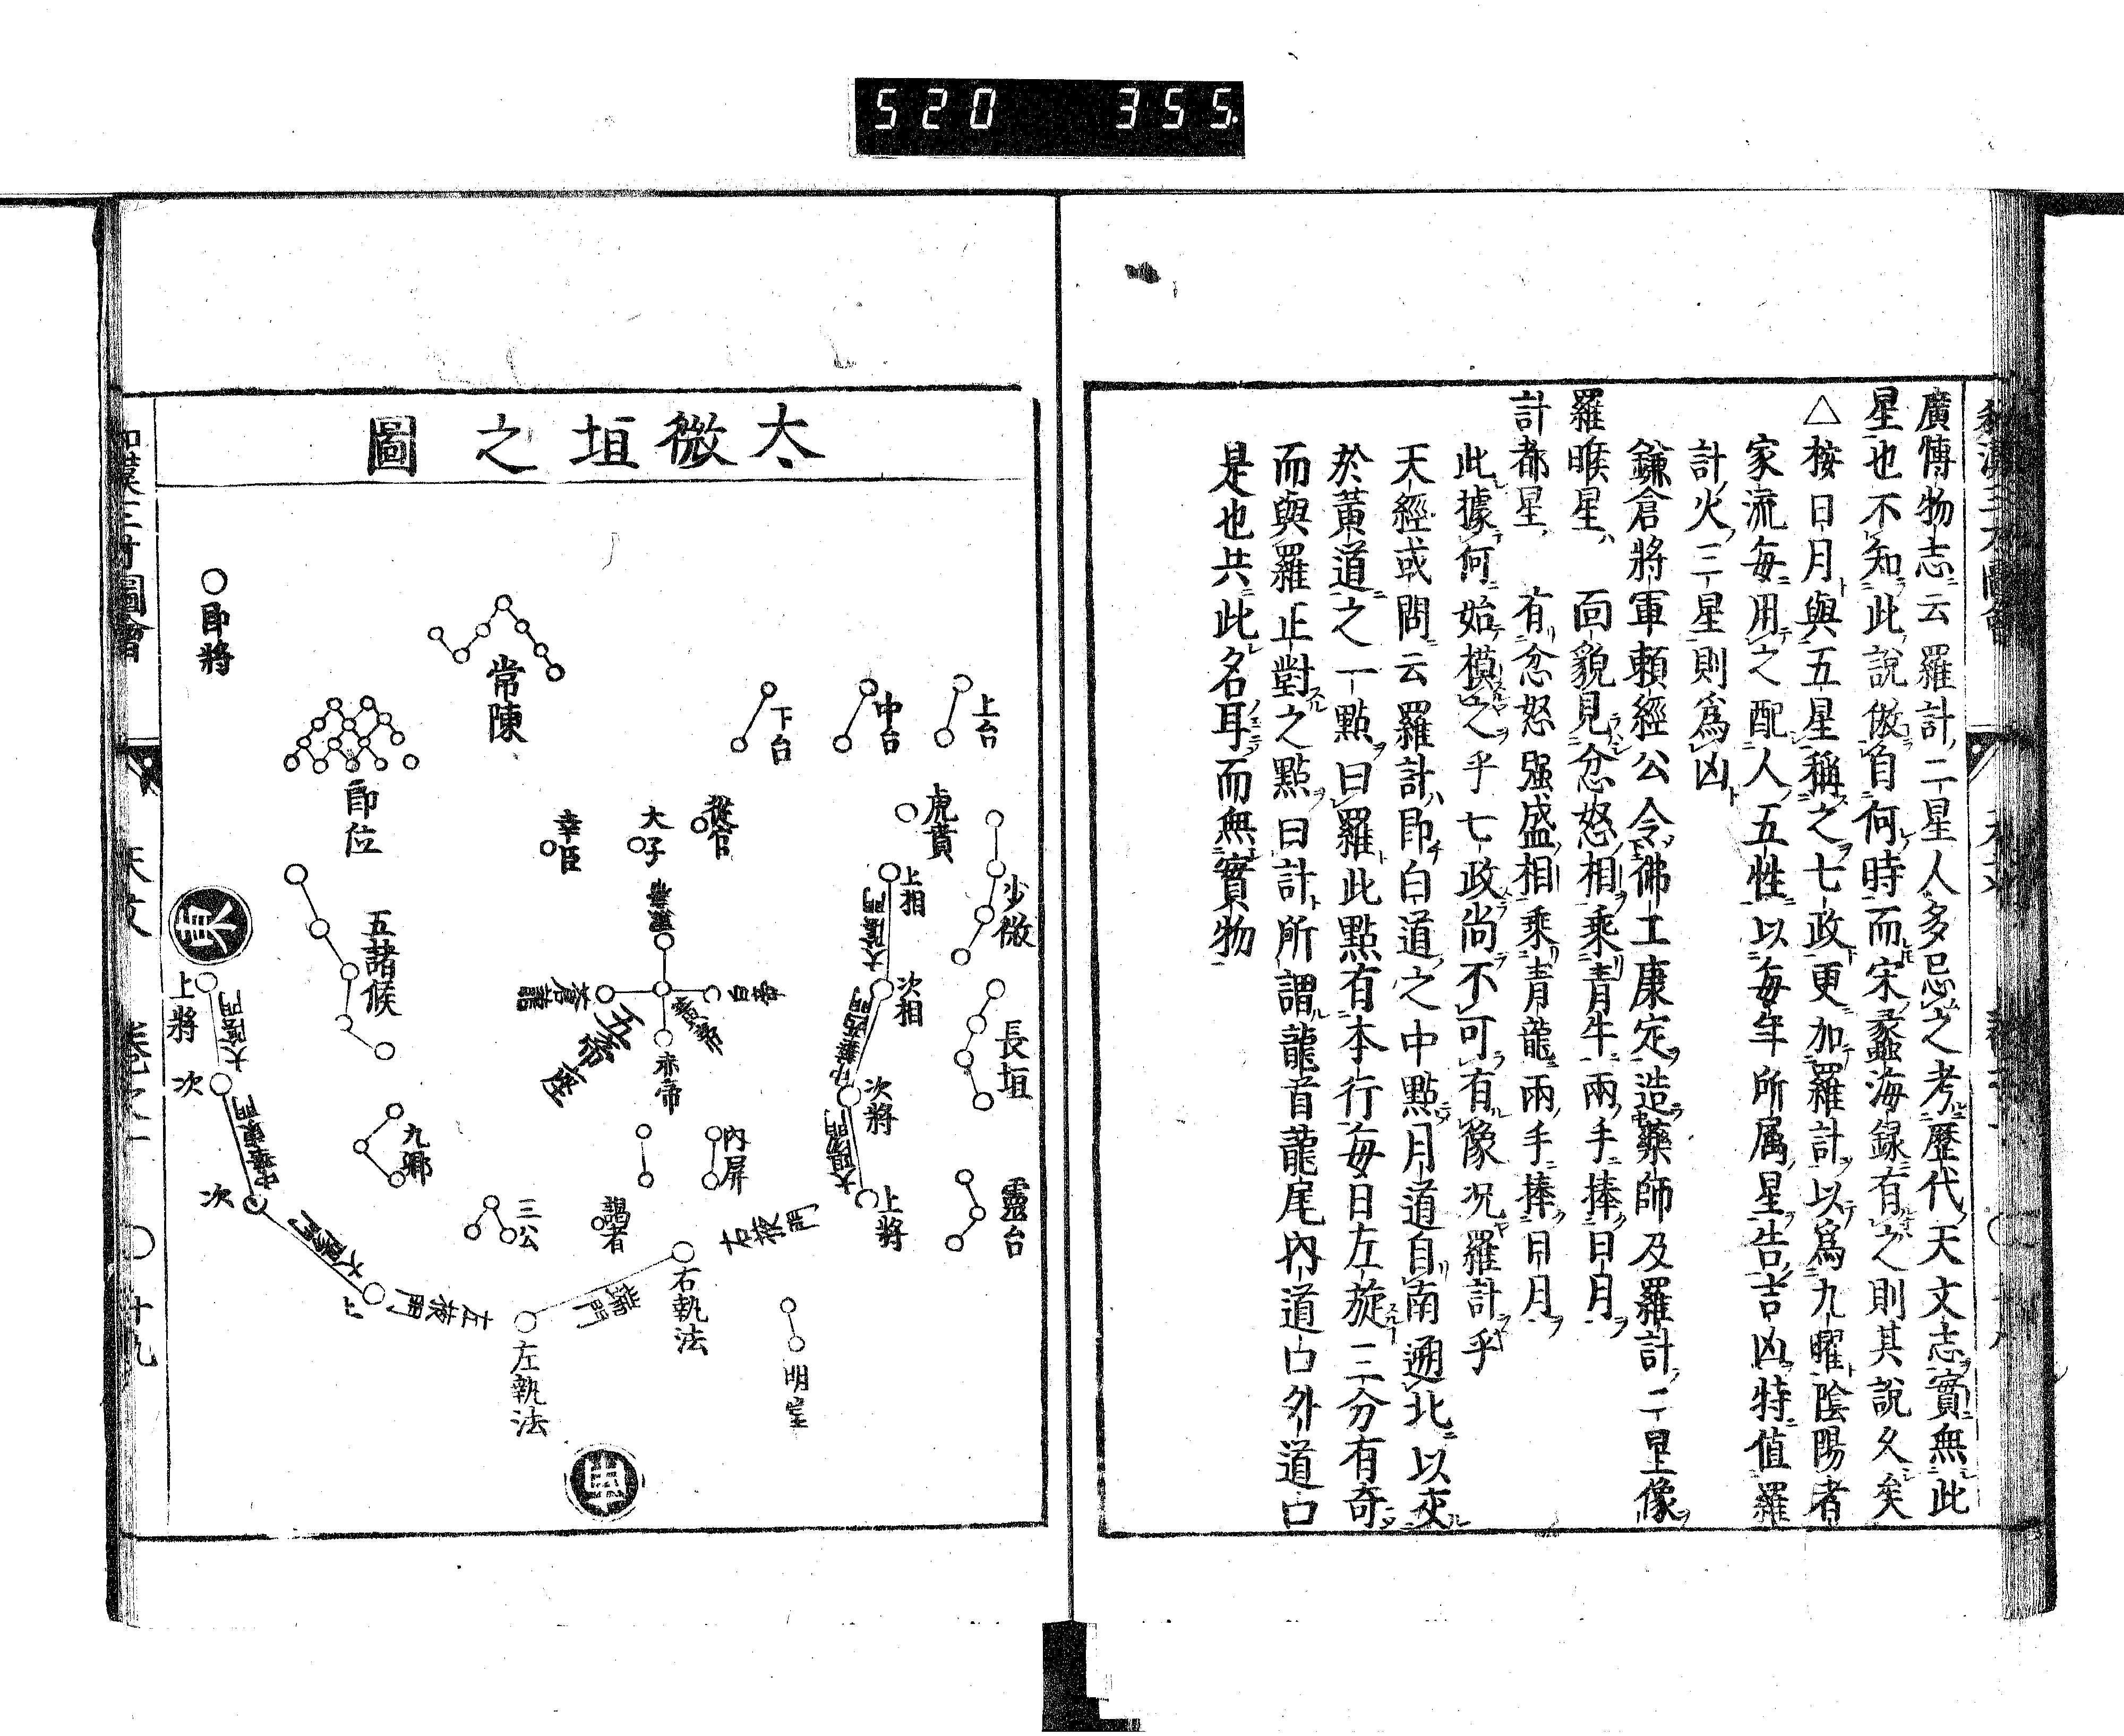 520 355.
廣博物志ニ云羅計ノ二星人多忌之考ルニ歷代ノ天文志ヲ實ニ無此
星也不知此ノ說倣自何時而宋ノ蠡海錄ニ有之則其說久矣
△按日月ト與五星稱之ヲ七政ト更ニ加テ羅計ヲ以爲九曜ト陰陽者
家流每ニ用之配人ノ五性ニ以每年所属星ヲ告吉凶ヲ特ニ值羅
計火ノ三星則爲凶ト
鎌倉將軍賴經公令佛工康定ヲ造藥師及羅計ノ二星像ヲ
羅睺星、面貌見忿怒ノ相ヲ乘青牛ニ兩手ニ捧日月ヲ
計都星、有忿怒强盛ノ相乘青龍ニ兩手ニ捧日月ヲ
此據何ニ始テ模之ヲ乎七政尚不可有像況羅計ヲヤ乎
天經或問ニ云羅計ハ卽チ白道ノ之中點月道自南遡北ニ以交ル
於黃道ニ之一點ヲ曰羅ト此點有本行每日左旋スルー三分有奇
而與羅正對スル之點ヲ曰計ト所謂龍首龍尾內道口外道口
是也共ニ此名耳ノミニテ而無實物
太微垣之圖
上台
中台
下台
常陳
郎將
郎位
虎賁
少微
長垣
靈台
從官
太子
幸臣
五諸候
上相
太陰門
次相
中華西門
次將
太陽門
上將
黃帝
赤帝
蒼龍
五帝座
內屏
九卿
三公
謁者
東
上將
太陰門
次
中華東門
次
太陽門
上
左掖門
端門
右掖門
右執法
左執法
明堂
南
和漢三才圖會
天文
卷之一
○
十九